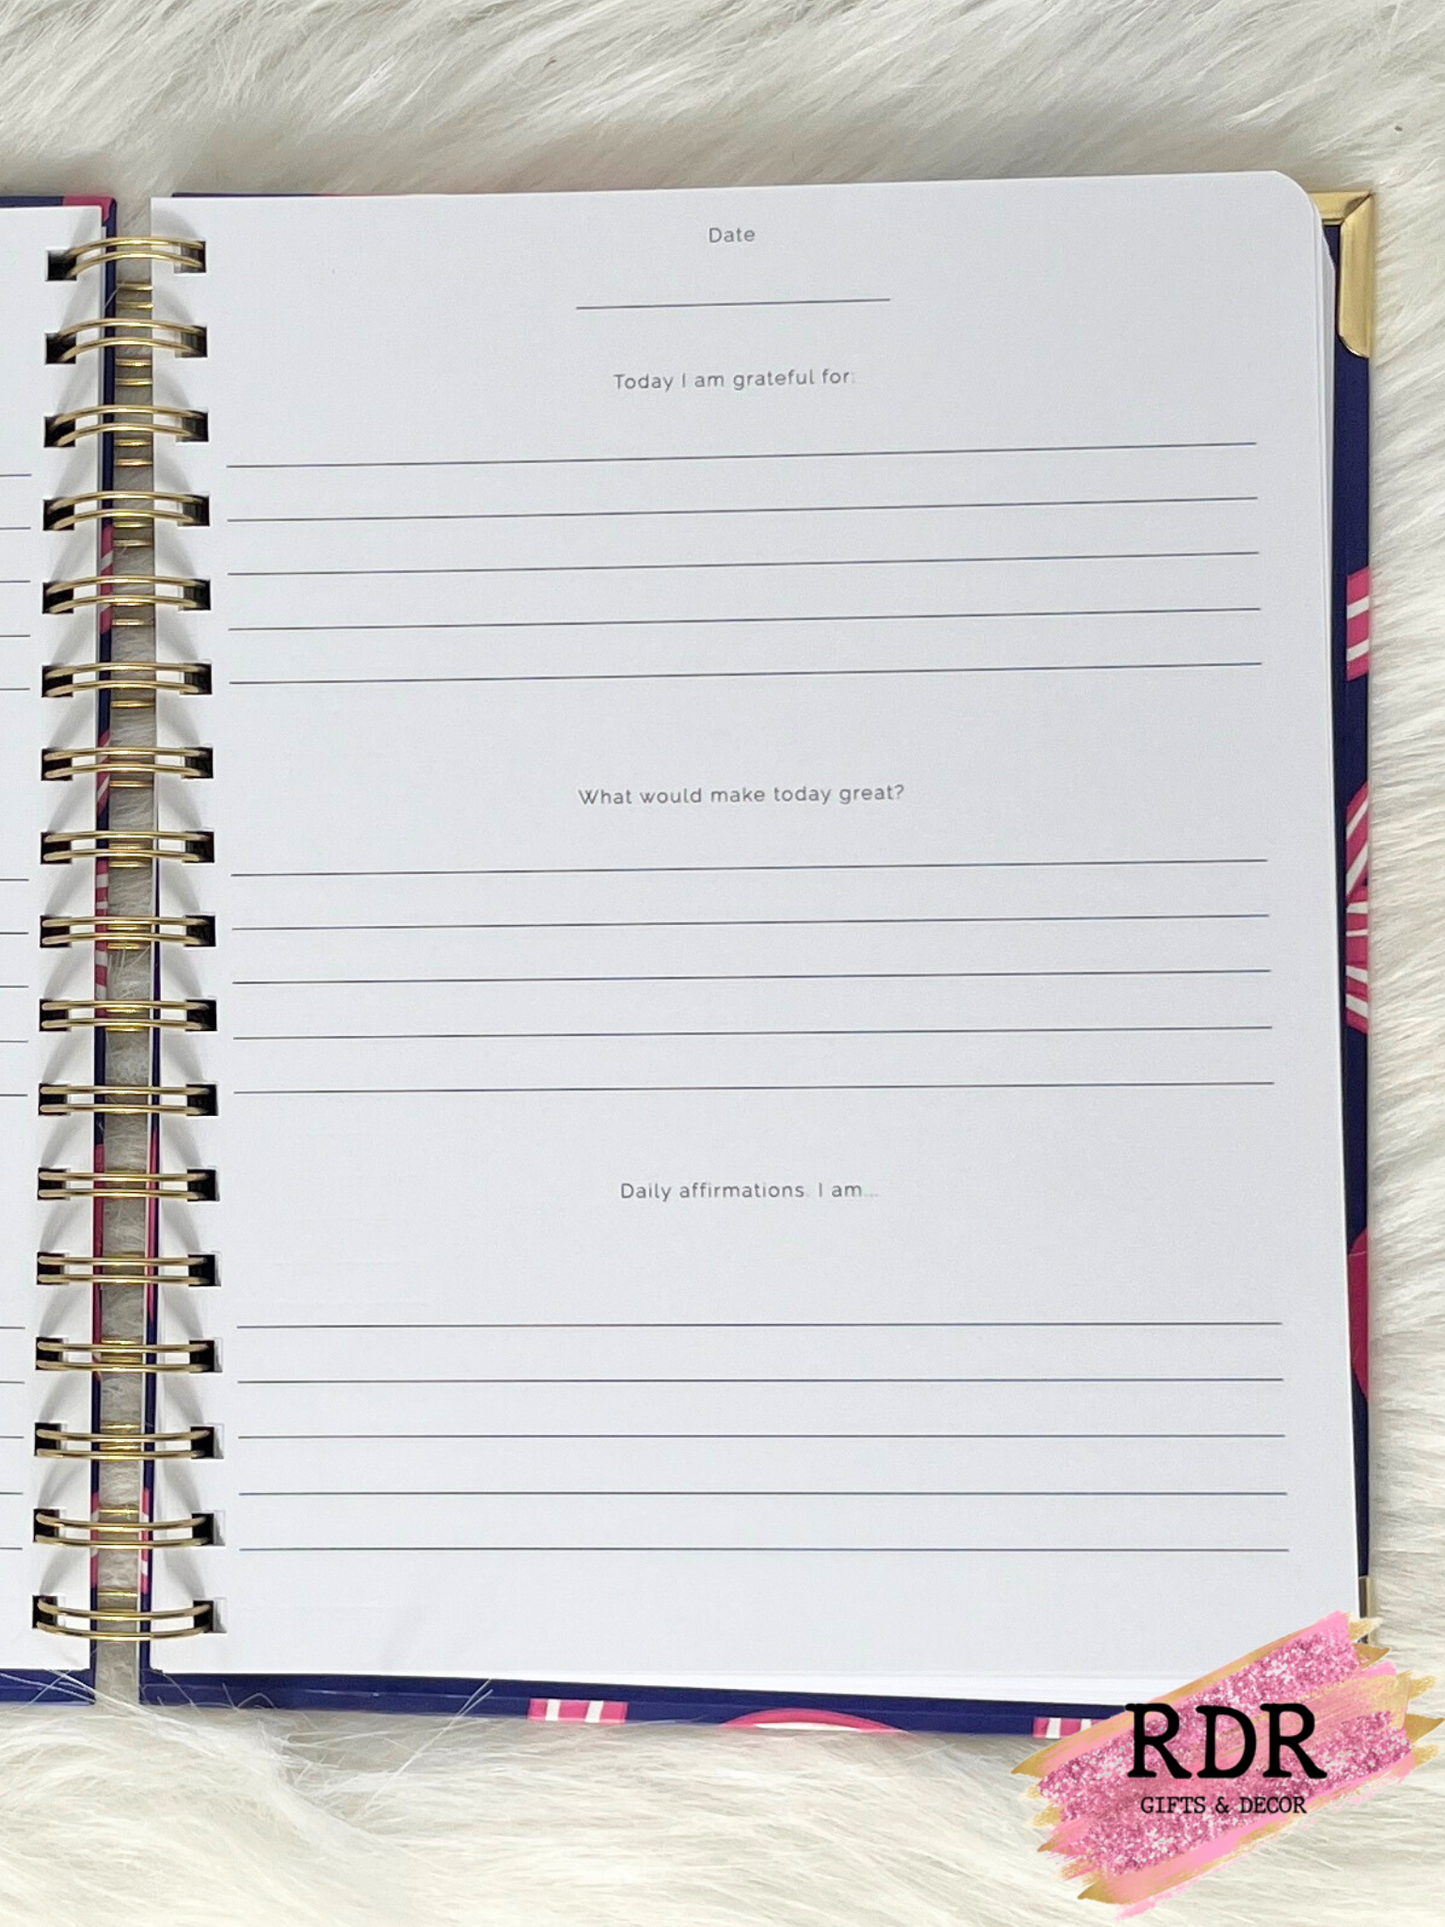 Date
Today I am grateful for:
What would make today great?
Daily affirmations. I am...
RDR
GIFTS & DECOR